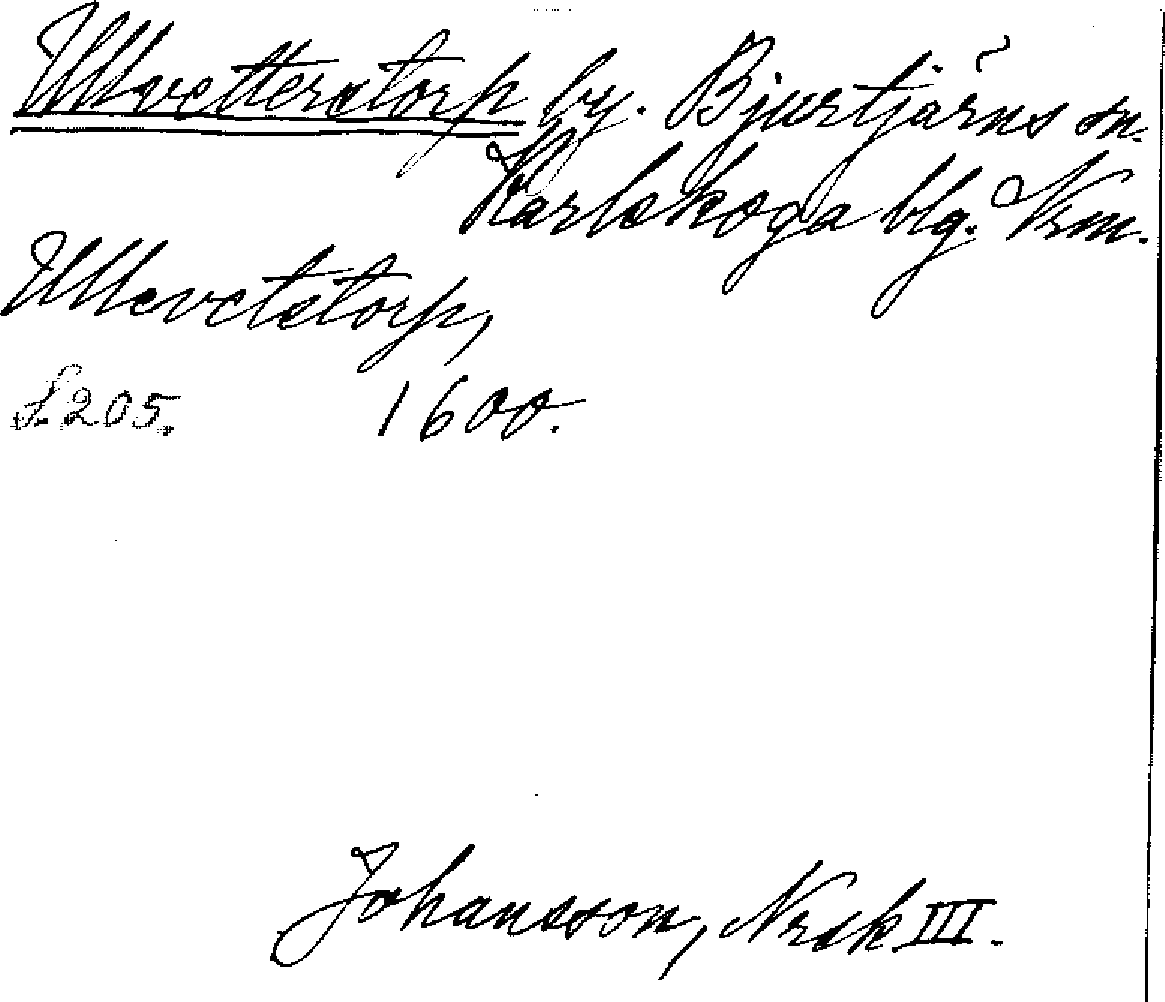 Ullvetterstorp by. Bjurtjärns sn.
Karlskoga blg. Vrm.
Ullevetstorp,
f. 205. 1600.
Johansson, Nrsk III.